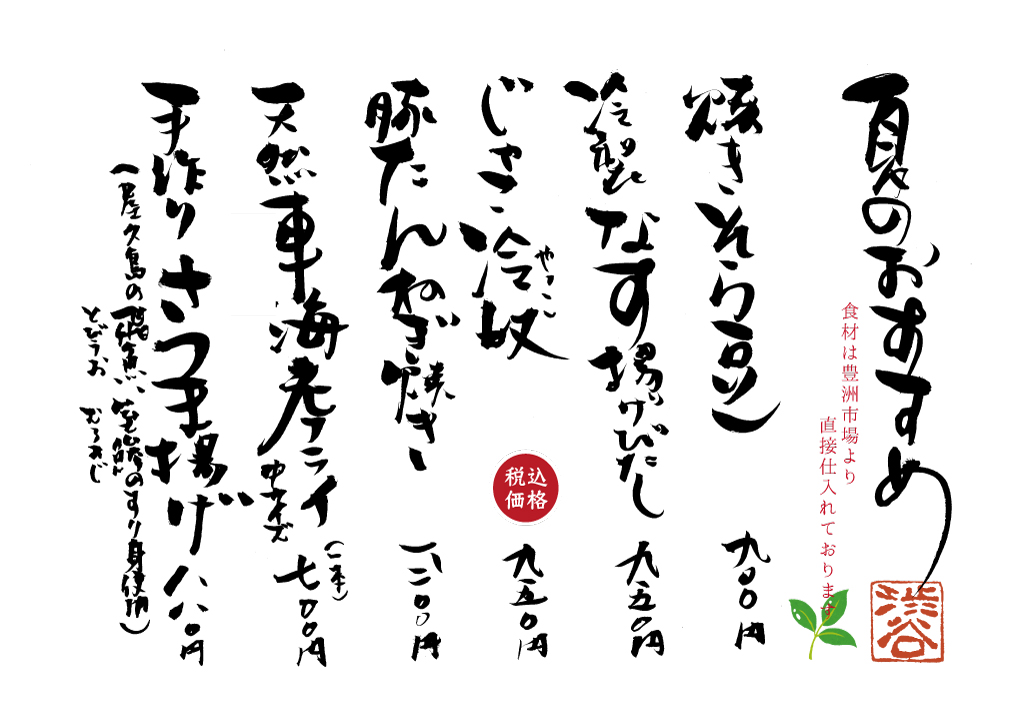 夏のおすすめ
食材は豊洲市場より
直接仕入れております
渋谷
焼きそら豆
九〇〇円
冷製なす揚げびたし
九五〇円
じゃこ冷奴
やっこ
九五〇円
税込
価格
豚たんねぎ焼き
一、二〇〇円
天然車海老フライ
中サイズ
(一本)
七〇〇円
手作りさつま揚げ
八八〇円
(屋久島の飛魚、室鯵のすり身使用)
とびうお
むろあじ